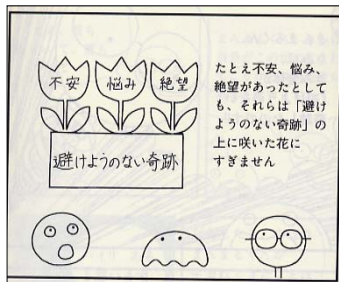 不安 悩み 絶望
避けようのない奇跡
たとえ不安、悩み、
絶望があったとして
も、それらは「避け
ようのない奇跡」の
上に咲いた花に
すぎません